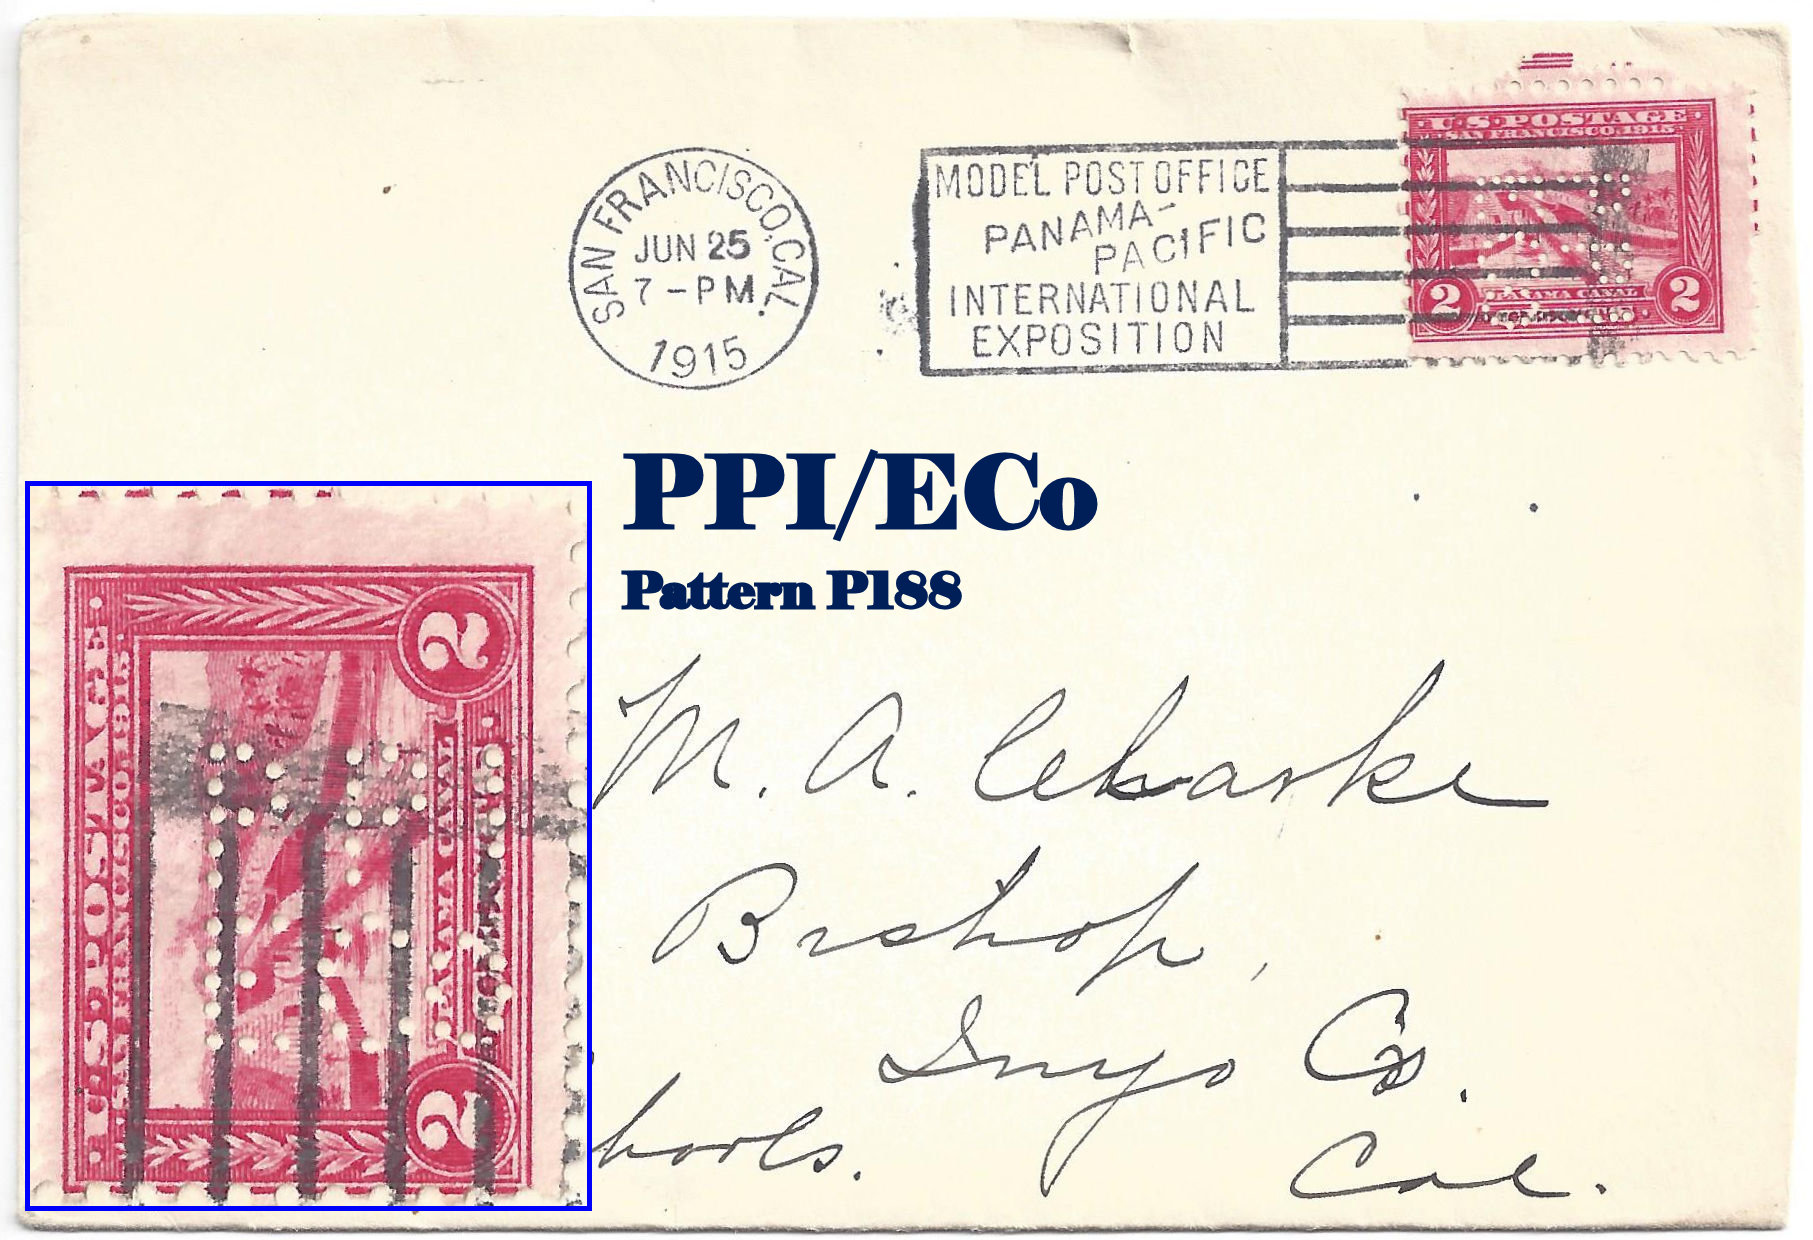 SAN FRANCISCO, CAL.
JUN 25
7-PM
1915
MODEL POST OFFICE
PANAMA-
PACIFIC
INTERNATIONAL
EXPOSITION
U·S·POSTAGE
SAN FRANCISCO, 1915
2 PANAMA CANAL 2
PPI/ECo
Pattern P188
U·S·POSTAGE
SAN FRANCISCO, 1915
2 PANAMA CANAL 2
M. A. Clarke
Bishop,
Inyo Co.
hools.
Cal.